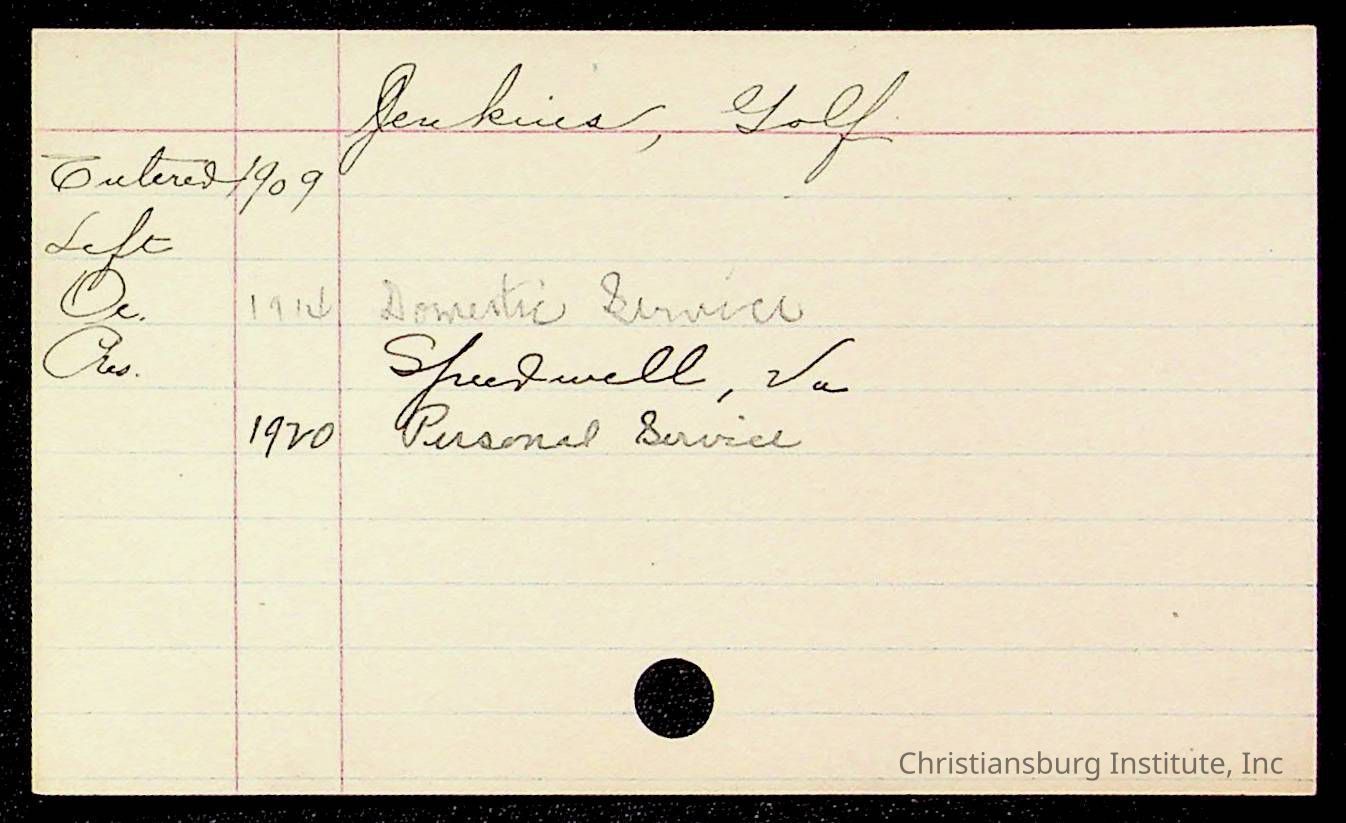 Jenkins, Golf
Entered 1909
Left
Oc. 1914 Domestic Service
Res. Speedwell, Va
1920 Personal Service
Christiansburg Institute, Inc